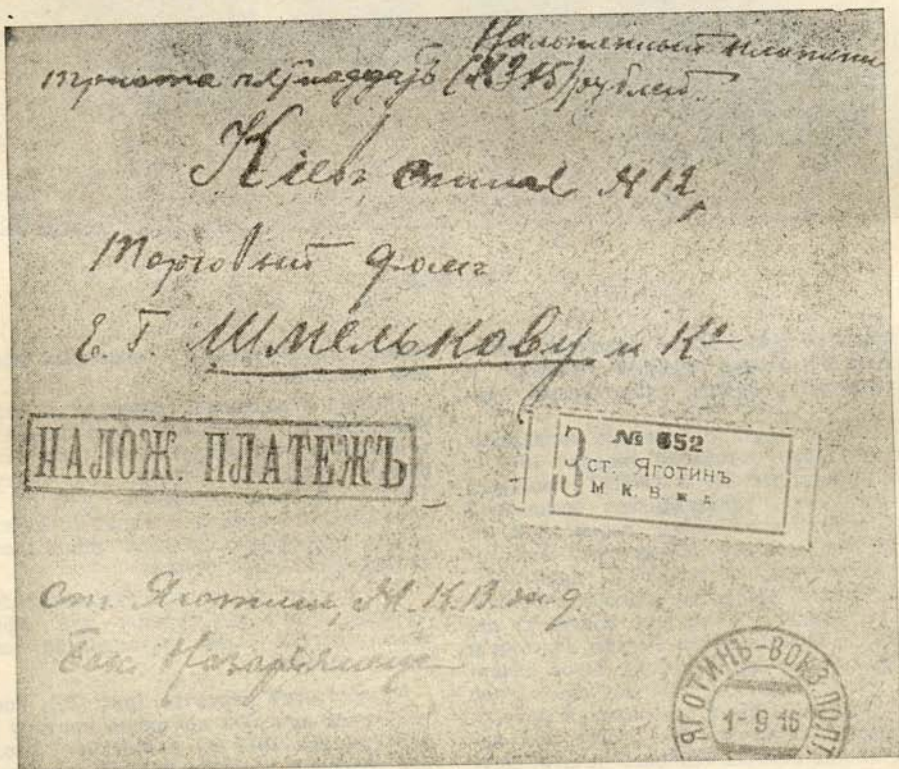 Наложенный платежъ
триста пятнадцать (315) рублей.
Кіевъ № 12,
Торговый домъ
Е. Г. Шмелькову и Кº
НАЛОЖ. ПЛАТЕЖЪ
№ 652
З ст. Яготинъ
М К. В. ж. д.
Ст. Яготин, М.К.В. ж. д.
ЯГОТИНЪ-ВОКЗ. ПОЛТ.
1-9 16